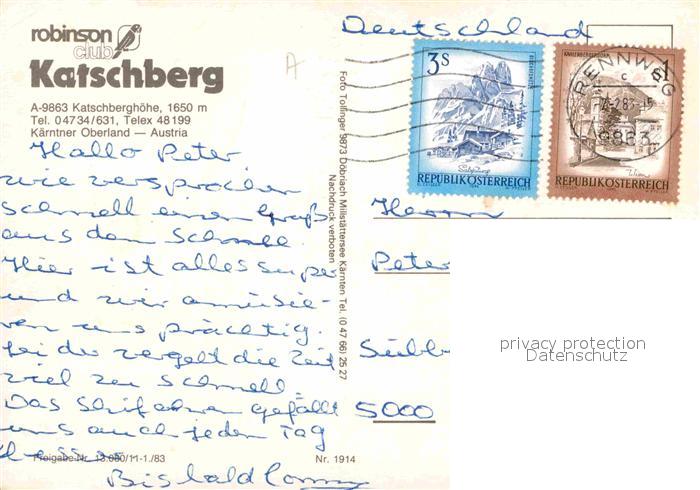 robinson
club
Katschberg
A-9863 Katschberghöhe, 1650 m
Tel. 0 47 34 / 631, Telex 48 199
Kärntner Oberland — Austria
Hallo Peter
wie versprochen
schnell einen Gruß
aus dem Schnee.
Hier ist alles super
und wir amüsie-
ren uns prächtig.
vergeht die Zeit
viel zu schnell.
Das Skifahren gefällt
uns auch jeden Tag
Bis bald
Freigabe-Nr. 13.080/11-1./83
Nr. 1914
Foto Tollinger 9873 Döbriach Millstättersee Kärnten Tel. (0 47 66) 25 27
Nachdruck verboten
Deutschland
3 S
REPUBLIK ÖSTERREICH
1
REPUBLIK ÖSTERREICH
RENNWEG
9863
Herrn
Peter
5000
privacy protection
Datenschutz